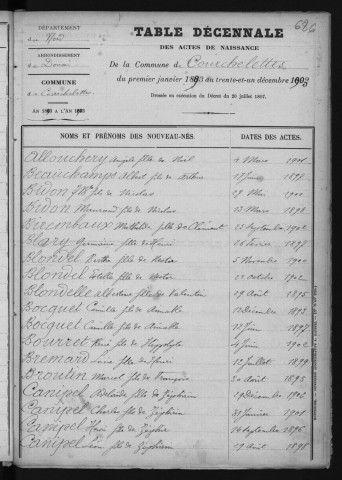 686
DÉPARTEMENT
du Nord
ARRONDISSEMENT
de Douai
COMMUNE
de Courchelettes
AN 1893 A L'AN 1903
TABLE DÉCENNALE
DES ACTES DE NAISSANCE
De la Commune de Courchelettes
du premier janvier 1893 au trente-et-un décembre 1903
Dressée en exécution du Décret du 20 juillet 1807.
NOMS ET PRÉNOMS DES NOUVEAU-NÉS. DATES DES ACTES.
Allouchery Angèle fille de Noël 4 Mars 1901
Beauchamps Albert fils de 1897
Bidon fils de Nicolas 29 Mai 1900
Bidon fils de Nicolas 13 Mars 1898
Birembaux Mathilde fille de Clément 23 Septembre 1902
Germaine fille 26 Février 1897
Blondel Berthe fille de Hector 5 Novembre 1900
Blondel fille de Hector 22 octobre 1902
Blondelle Albertine fille de Valentin 29 Août 1895
Bocquet Camille fils de 13 Décembre 1893
Bocquet Camille fils de 23 Juin 1897
Bourrit René fils de Hippolyte 4 Juin 1902
Bremard fils de Henri 12 Juillet 1899
Broutin Marcel fils de François 20 Août 1898
Canipel Adélaïde fille de Zéphirin 19 Décembre 1902
Canipel Charles fils de Zéphirin 31 Janvier 1901
Canipel Henri fils de Zéphir 14 Septembre 1896
Canipel Léon fils de Zéphirin 29 Août 1898